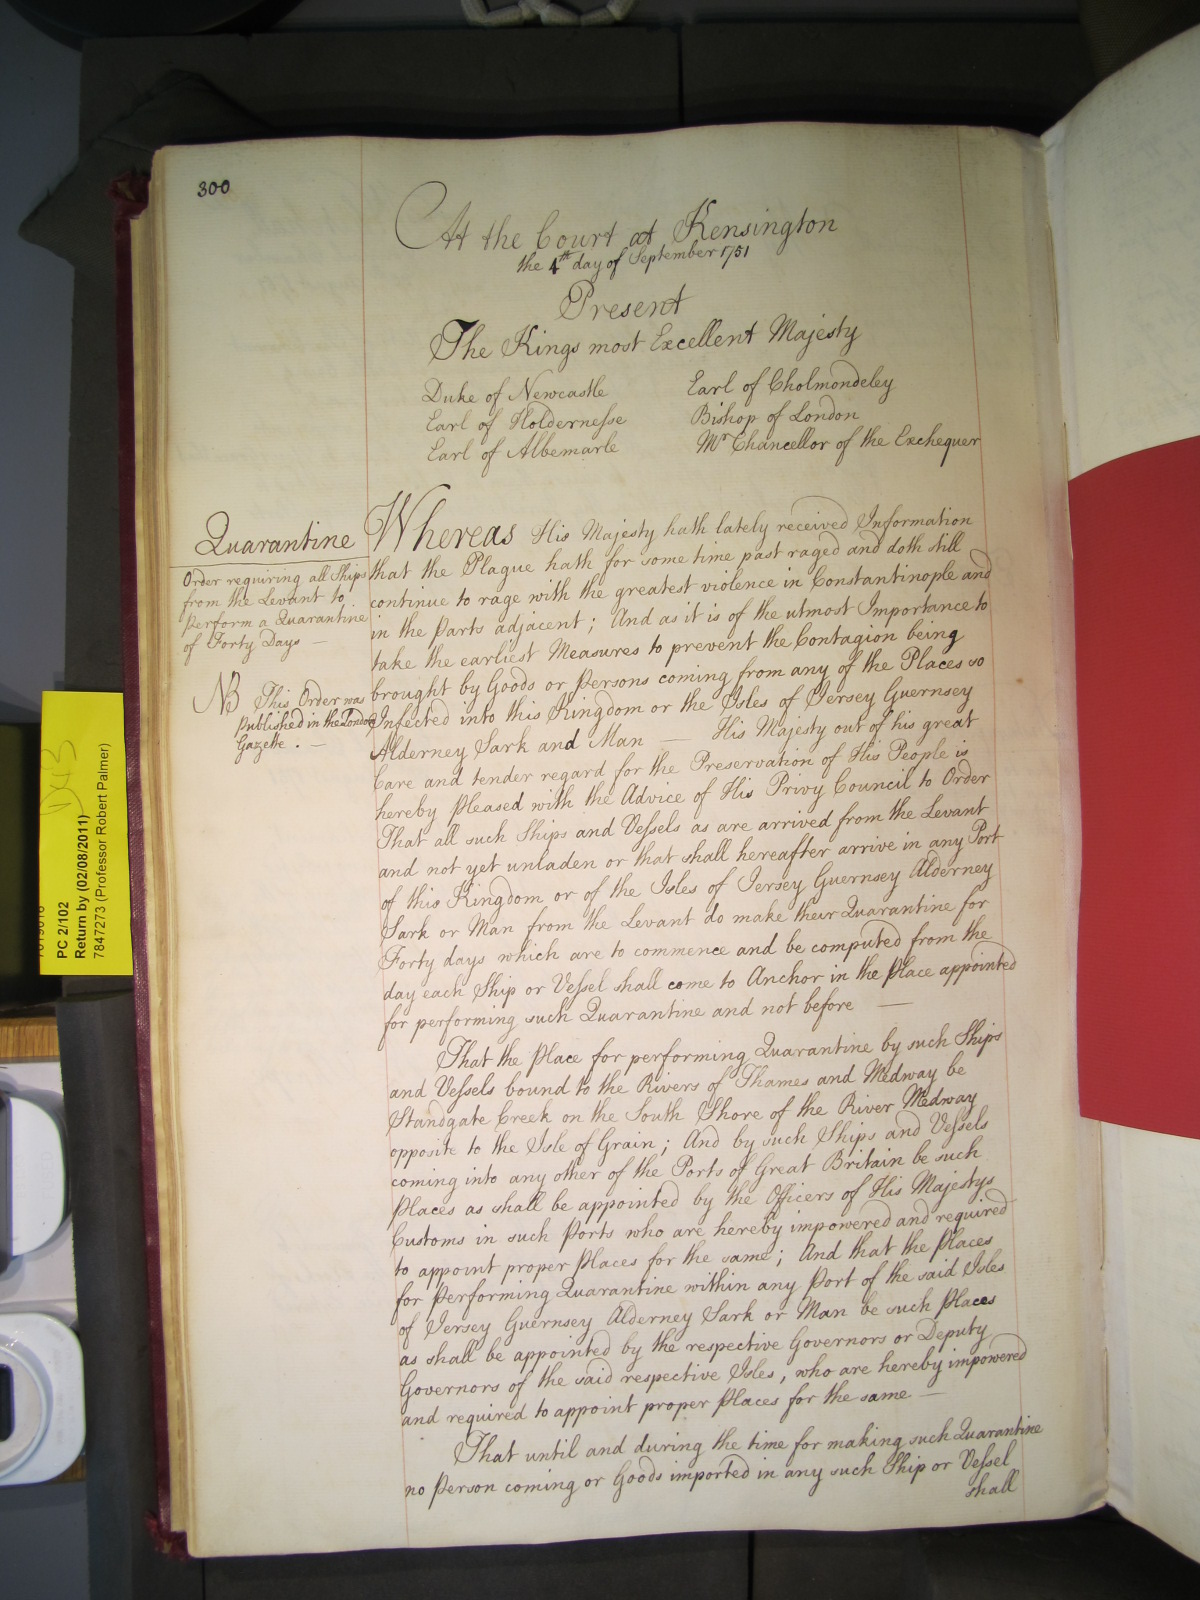 300
At the Court at Kensington
the 4th day of September 1751
Present
The Kings most Excellent Majesty
Duke of Newcastle
Earl of Holdernesse
Earl of Albemarle
Earl of Cholmondeley
Bishop of London
Mr Chancellor of the Exchequer
Quarantine
Order requiring all Ships
from the Levant to
perform a Quarantine
of Forty Days —
NB This Order was
Published in the London
Gazette. —
Whereas His Majesty hath lately received Information
that the Plague hath for some time past raged and doth still
continue to rage with the greatest violence in Constantinople and
in the Parts adjacent; And as it is of the utmost Importance to
take the earliest Measures to prevent the Contagion being
brought by Goods or Persons coming from any of the Places so
Infected into this Kingdom or the Isles of Jersey Guernsey
Alderney Sark and Man — His Majesty out of his great
Care and tender regard for the Preservation of His People is
hereby pleased with the Advice of His Privy Council to Order
That all such Ships and Vessels as are arrived from the Levant
and not yet unladen or that shall hereafter arrive in any Port
of this Kingdom or of the Isles of Jersey Guernsey Alderney
Sark or Man from the Levant do make their Quarantine for
Forty days which are to commence and be computed from the
day each Ship or Vessel shall come to Anchor in the Place appointed
for performing such Quarantine and not before —
That the Place for performing Quarantine by such Ships
and Vessels bound to the Rivers of Thames and Medway be
Standgate Creek on the South Shore of the River Medway
opposite to the Isle of Grain; And by such Ships and Vessels
coming into any other of the Ports of Great Britain be such
Places as shall be appointed by the Officers of His Majestys
Customs in such Ports who are hereby impowered and required
to appoint proper Places for the same; And that the Places
for performing Quarantine within any Port of the said Isles
of Jersey Guernsey Alderney Sark or Man be such Places
as shall be appointed by the respective Governors or Deputy
Governors of the said respective Isles, who are hereby impowered
and required to appoint proper Places for the same. —
That until and during the time for making such Quarantine
no Person coming or Goods imported in any such Ship or Vessel
shall
PC 2/102
Return by (02/08/2011)
7847273 (Professor Robert Palmer)